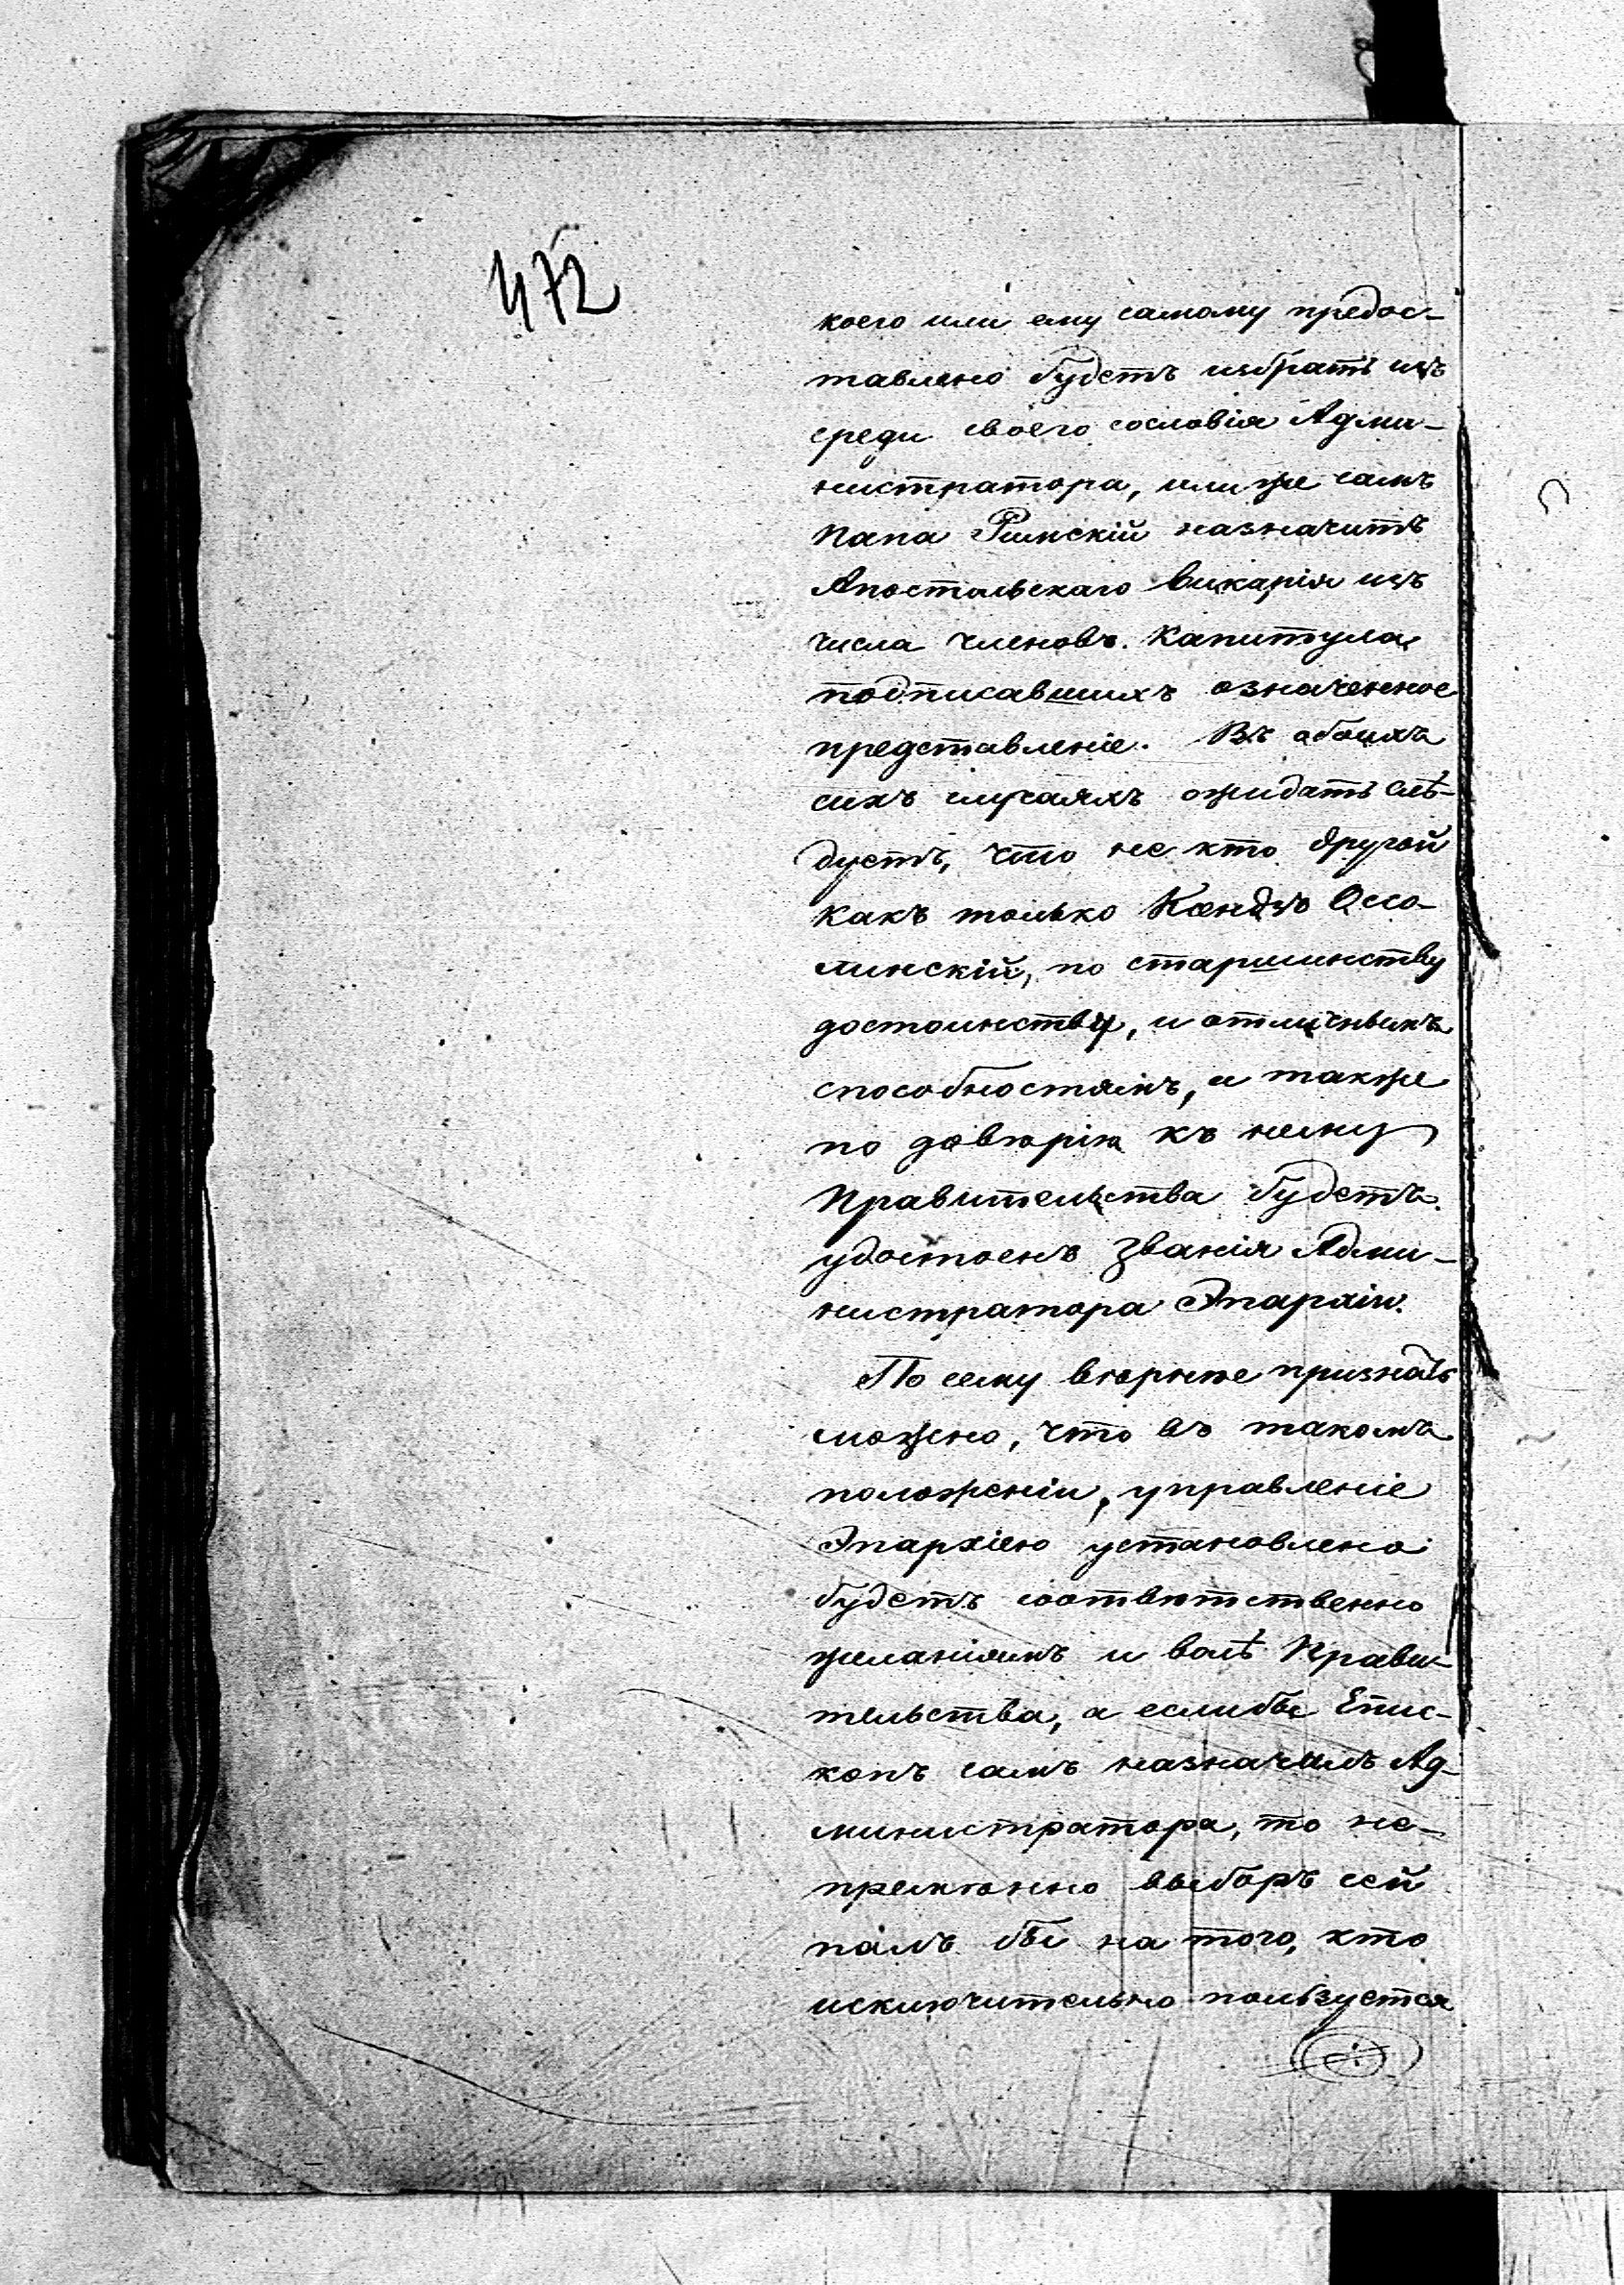 472
коего или ему самому предос-
тавлено будетъ избрать изъ
среди своего сословія Адми-
нистратора, или же самъ
Папа Римскій назначитъ
Апостольскаго Викарія изъ
числа членовъ Капитула,
подписавшихъ означенное
представленіе. Въ обоихъ
сихъ случаяхъ ожидать слѣ-
дуетъ, что не кто другой
какъ только Ксендзъ Оссо-
линскій, по старшинству
достоинству, и отличнымъ
способностямъ, а также
по довѣрію къ нему
Правительства будетъ
удостоенъ званія Адми-
нистратора Эпархіи.
По сему вѣрнѣе признать
можно, что въ такомъ
положеніи, управленіе
Эпархіею установлено
будетъ соотвѣтственно
желаніямъ и волѣ Прави-
тельства, а еслибы Епис-
копъ самъ назначилъ Ад-
министратора, то не-
премѣнно выборъ сей
палъ бы на того, кто
исключительно пользуется